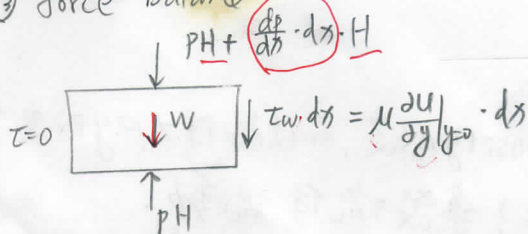 ③ force balance
pH + dp/dx · dx · H
τ=0
W
τw · dx = μ ∂u/∂y|y=0 · dx
pH